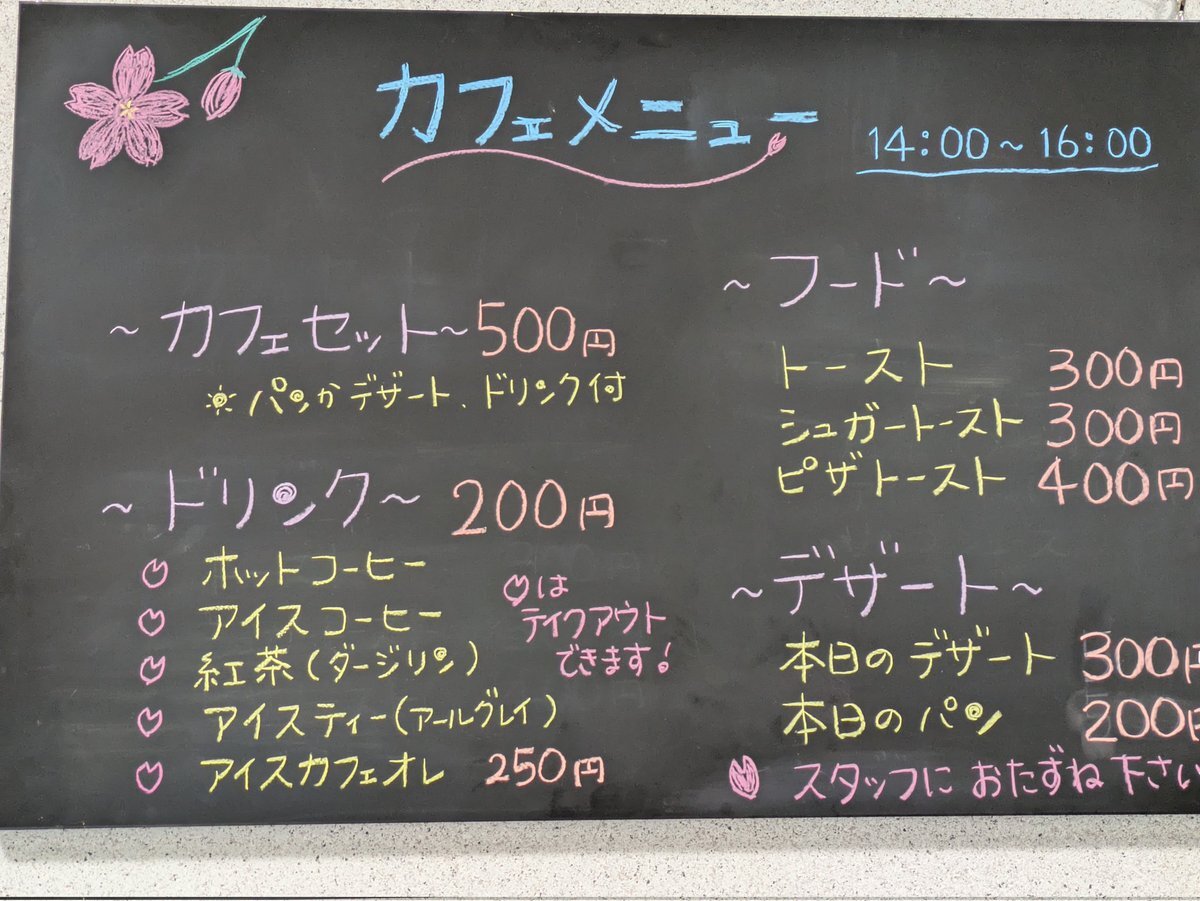 カフェメニュー 14:00～16:00
～カフェセット～500円
※パンかデザート、ドリンク付
～ドリンク～ 200円
ホットコーヒー
アイスコーヒー
紅茶(ダージリン)
アイスティー(アールグレイ)
アイスカフェオレ 250円
は
テイクアウト
できます!
～フード～
トースト 300円
シュガートースト 300円
ピザトースト 400円
～デザート～
本日のデザート 300円
本日のパン 200円
スタッフにおたずね下さい